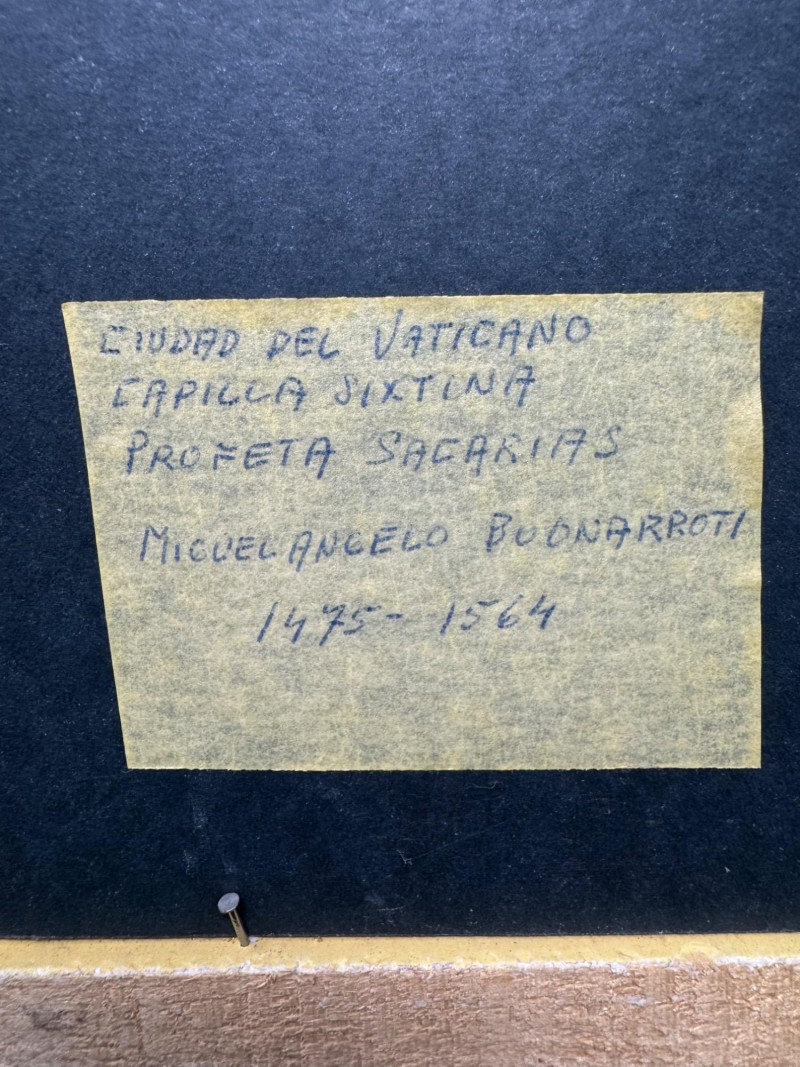 CIUDAD DEL VATICANO
CAPILLA SIXTINA
PROFETA SACARIAS
MIGUELANGELO BUONARROTI
1475-1564